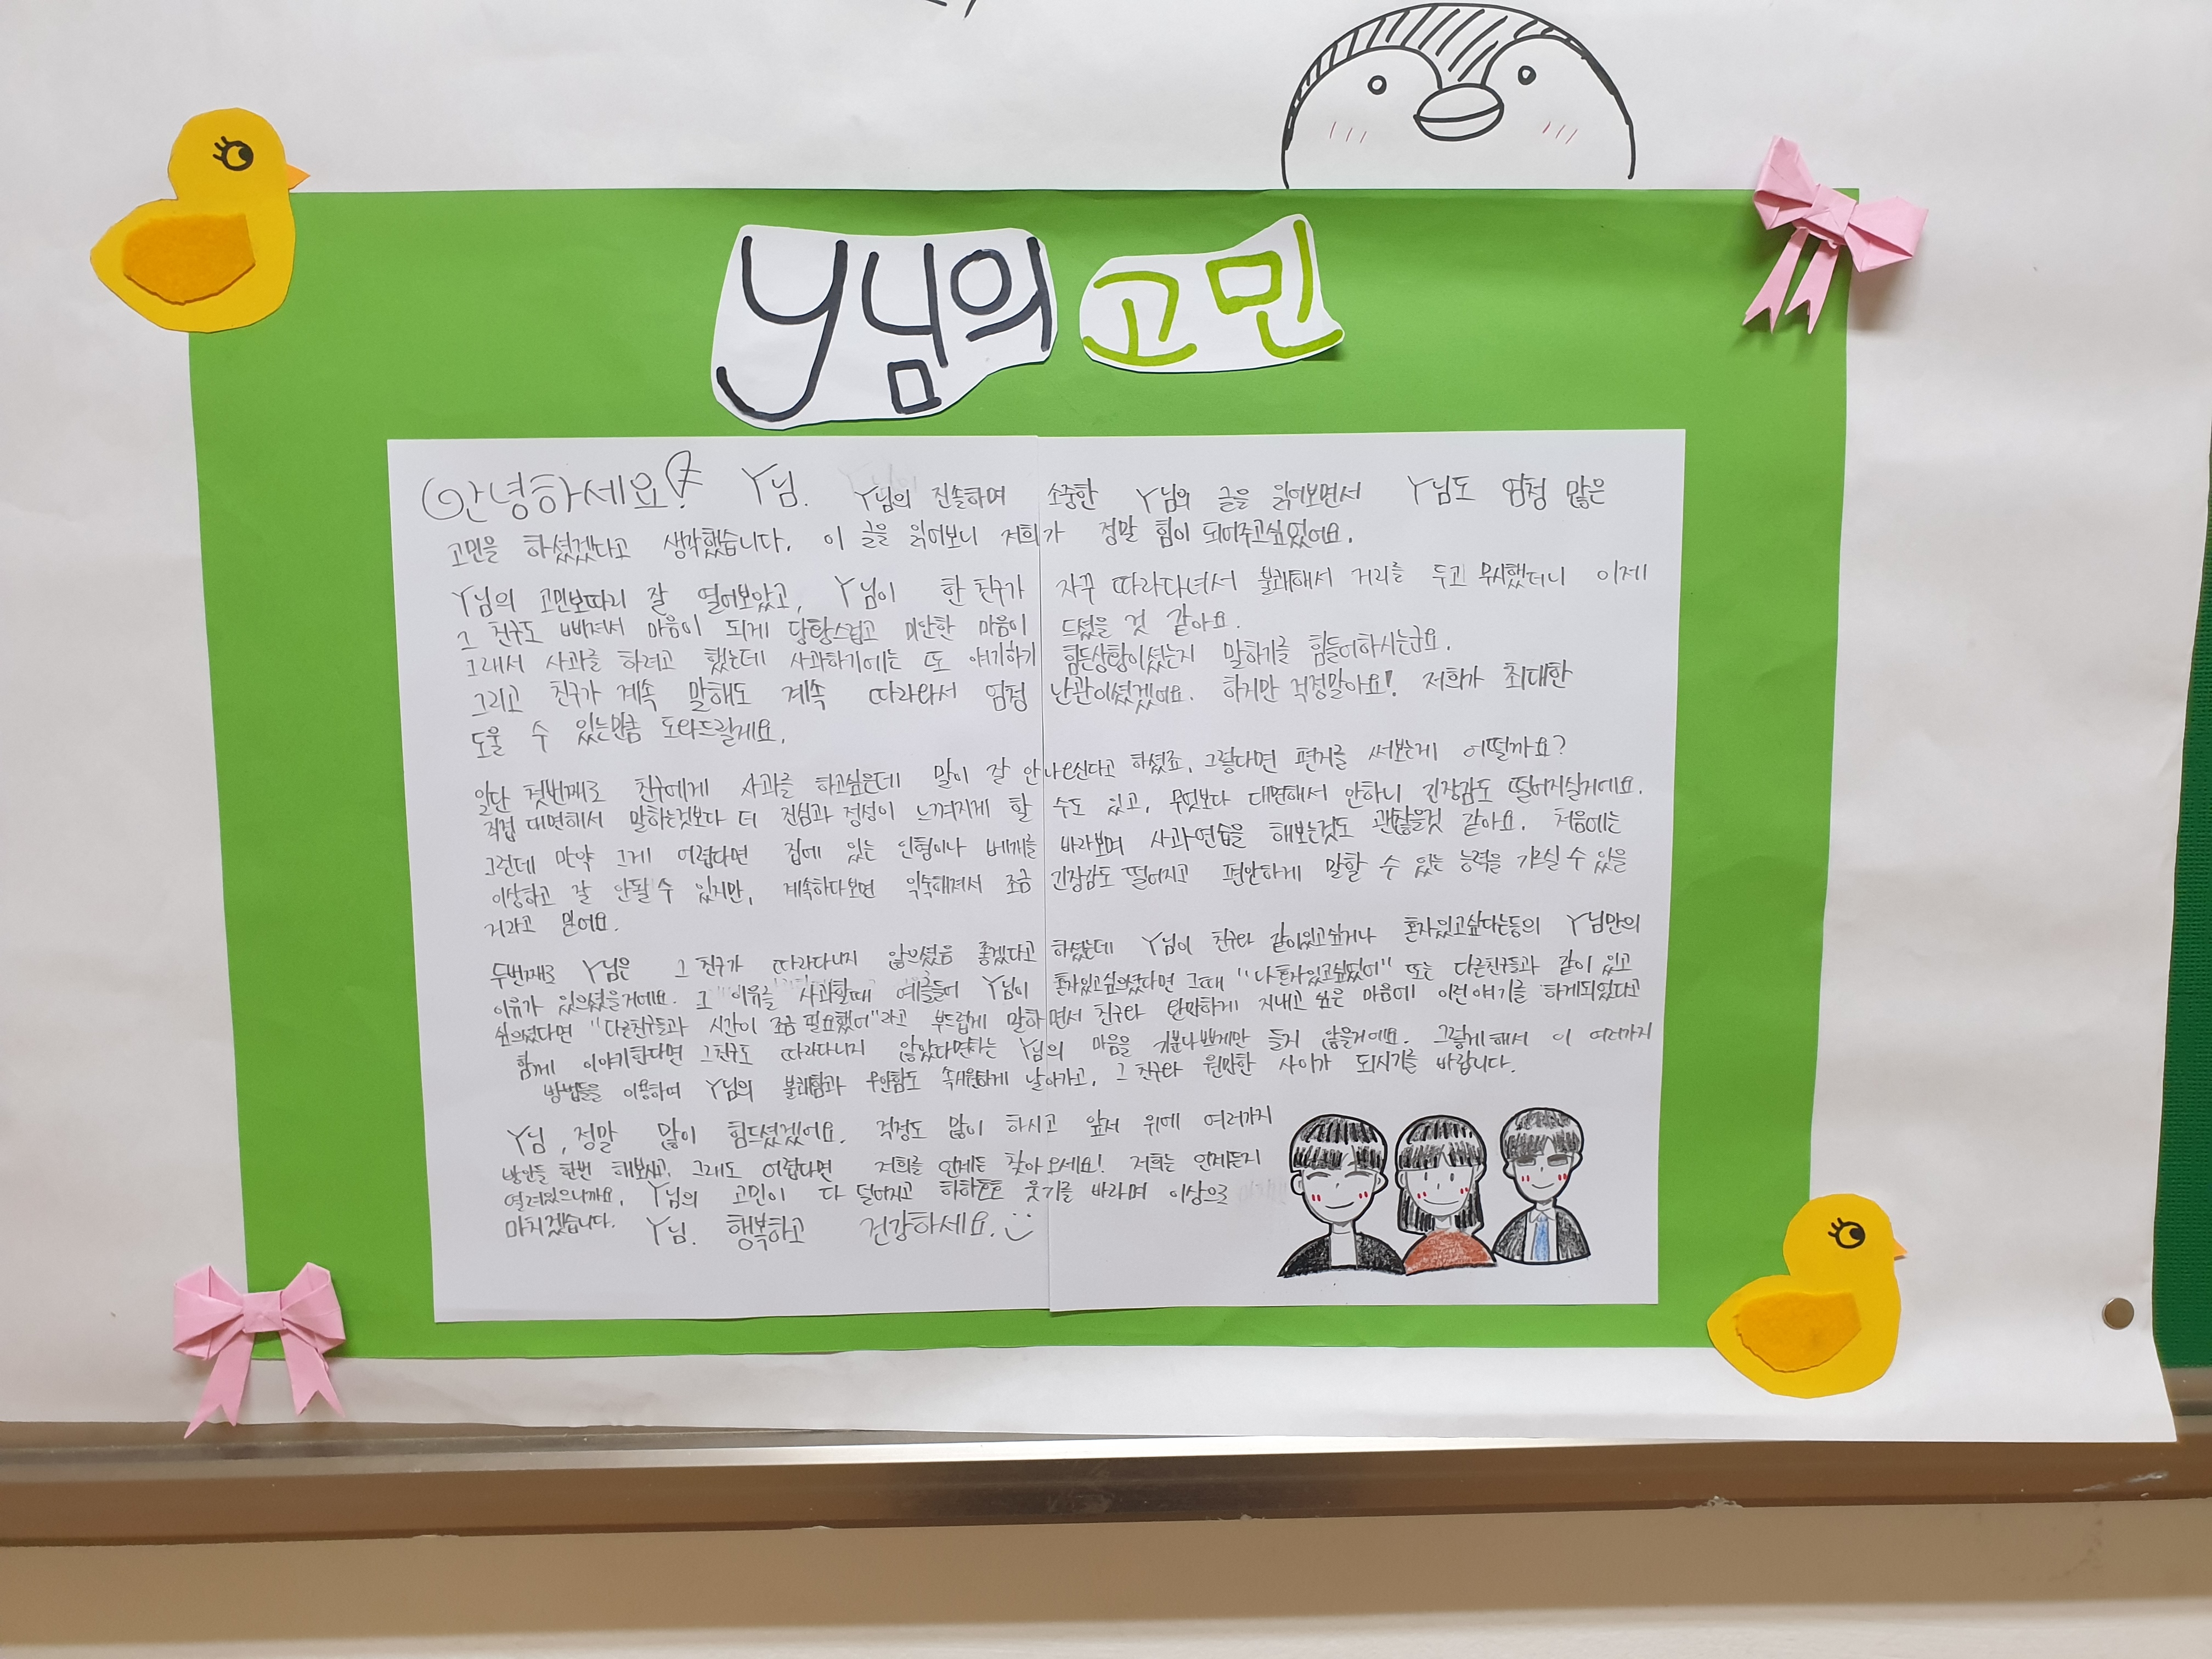 Y님의 고민
안녕하세요? Y님. Y님의 진솔하며 소중한 Y님의 글을 읽어보면서 Y님도 엄청 많은
고민을 하셨겠다고 생각했습니다. 이 글을 읽어보니 저희가 정말 힘이 되어주고싶었어요.
Y님의 고민보따리 잘 열어보았고, Y님이 한 친구가 자꾸 따라다녀서 불쾌해서 거리를 두고 무시했더니 이제
그 친구도 삐져서 마음이 되게 당황스럽고 미안한 마음이 드셨을 것 같아요.
그래서 사과를 하려고 했는데 사과하기에는 또 얘기하기 힘든상황이셨는지 말하기를 힘들어하시는군요.
그리고 친구가 계속 말해도 계속 따라와서 엄청 난관이셨겠어요. 하지만 걱정말아요! 저희가 최대한
도울 수 있는만큼 도와드릴게요.
일단 첫번째로 친구에게 사과를 하고싶은데 말이 잘 안나오신다고 하셨죠. 그렇다면 편지를 써보는게 어떨까요?
직접 대면해서 말하는것보다 더 진심과 정성이 느껴지게 할 수도 있고, 무엇보다 대면해서 안하니 긴장감도 떨어지실거예요.
그런데 만약 그게 어렵다면 집에 있는 인형이나 베개를 바라보며 사과연습을 해보는것도 괜찮을것 같아요. 처음에는
이상하고 잘 안될 수 있지만, 계속하다보면 익숙해져서 조금 긴장감도 떨어지고 편안하게 말할 수 있는 능력을 기르실 수 있을
거라고 믿어요.
두번째로 Y님은 그 친구가 따라다니지 않으셨음 좋겠다고 하셨는데 Y님이 친구와 같이있고싶거나 혼자있고싶다는등의 Y님만의
이유가 있으셨을거에요. 그 이유를 사과할때 예를들어 Y님이 혼자있고싶으셨다면 그때 "나 혼자있고싶었어" 또는 다른친구들과 같이 있고
싶으셨다면 "다른친구들과 시간이 조금 필요했어"라고 부드럽게 말하면서 친구와 원만하게 지내고 싶은 마음에 이런 얘기를 하게되었다고
함께 이야기한다면 그친구도 따라다니지 않았다면하는 Y님의 마음을 기분나쁘게만 듣지 않을거에요. 그렇게 해서 이 여러가지
방법들을 이용하여 Y님의 불쾌함과 우안함도 속시원하게 날아가고, 그 친구와 원만한 사이가 되시기를 바랍니다.
Y님, 정말 많이 힘드셨겠어요. 걱정도 많이 하시고 앞서 위에 여러가지
방안들 한번 해보시고, 그래도 어렵다면 저희를 언제든 찾아오세요! 저희는 언제든지
열려있으니까요. Y님의 고민이 다 덜어지고 하하호호 웃기를 바라며 이상으로
마치겠습니다. Y님. 행복하고 건강하세요.